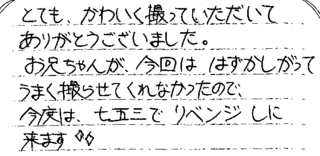 とても、かわいく撮っていただいて
ありがとうございました。
お兄ちゃんが、今回は はずかしがって
うまく撮らせてくれなかったので、
今度は、七五三で リベンジ しに
来ます